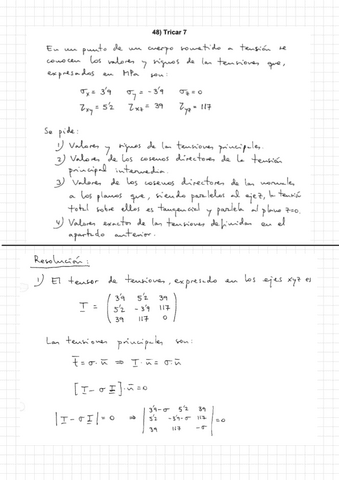 48) Tricar 7
En un punto de un cuerpo sometido a tensión se
conocen los valores y signos de las tensiones que,
expresados en MPa son:
σx = 3'9   σy = -3'9   σz = 0
Zxy = 5'2   Zxz = 39   Zyz = 117
Se pide:
1) Valores y signos de las tensiones principales.
2) Valores de los cosenos directores de la tensión
principal intermedia.
3) Valores de los cosenos directores de las normales
a los planos que, siendo paralelos al eje z, la tensión
total sobre ellos es tangencial y paralela al plano z=0.
4) Valores exactos de las tensiones definidas en el
apartado anterior.
Resolución:
1) El tensor de tensiones, expresado en los ejes xyz es
T = ( 3'9   5'2   39
5'2   -3'9   117
39   117   0 )
Las tensiones principales son:
t̄ = σ·ū ⇒ T·ū = σ·ū
[T - σ I]·ū = 0
|T - σ I| = 0 ⇒ | 3'9-σ   5'2   39
5'2   -3'9-σ   117
39   117   -σ | = 0